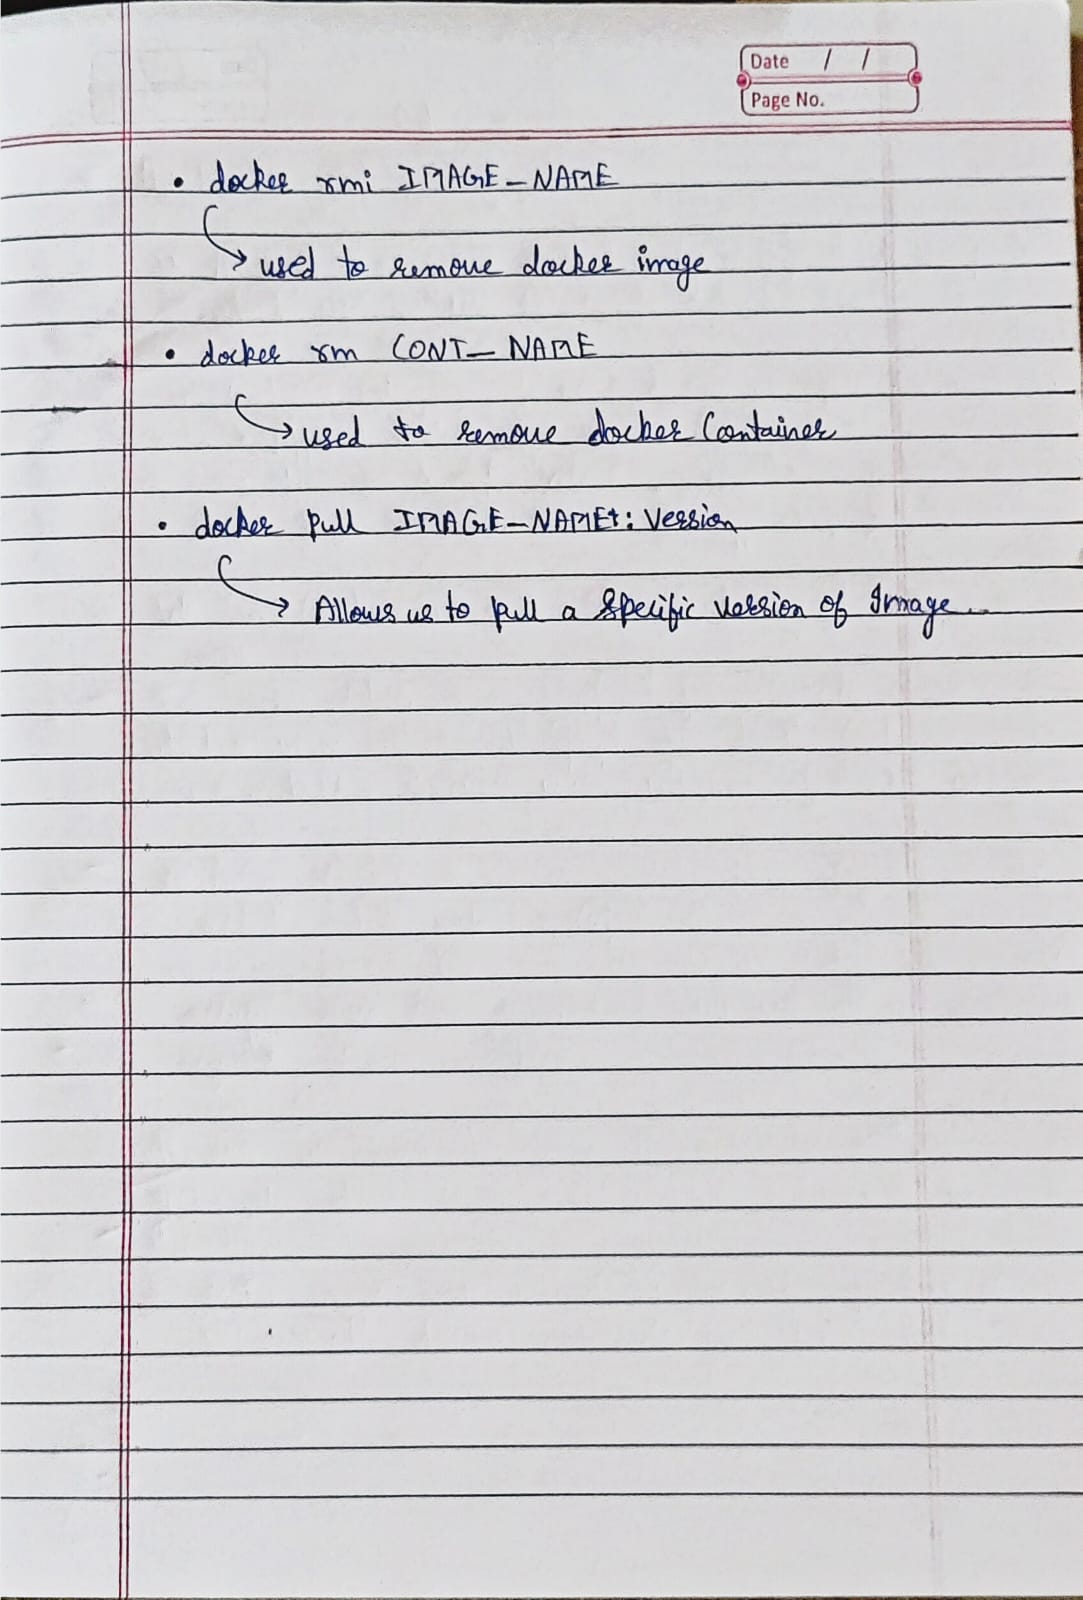 Date / /
Page No.
• docker rmi IMAGE-NAME
used to remove docker image
• docker rm CONT-NAME
used to remove docker Container
• docker pull IMAGE-NAME: Version
Allows us to pull a specific version of Image..